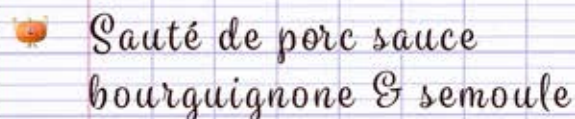 Sauté de porc sauce
bourguignone & semoule